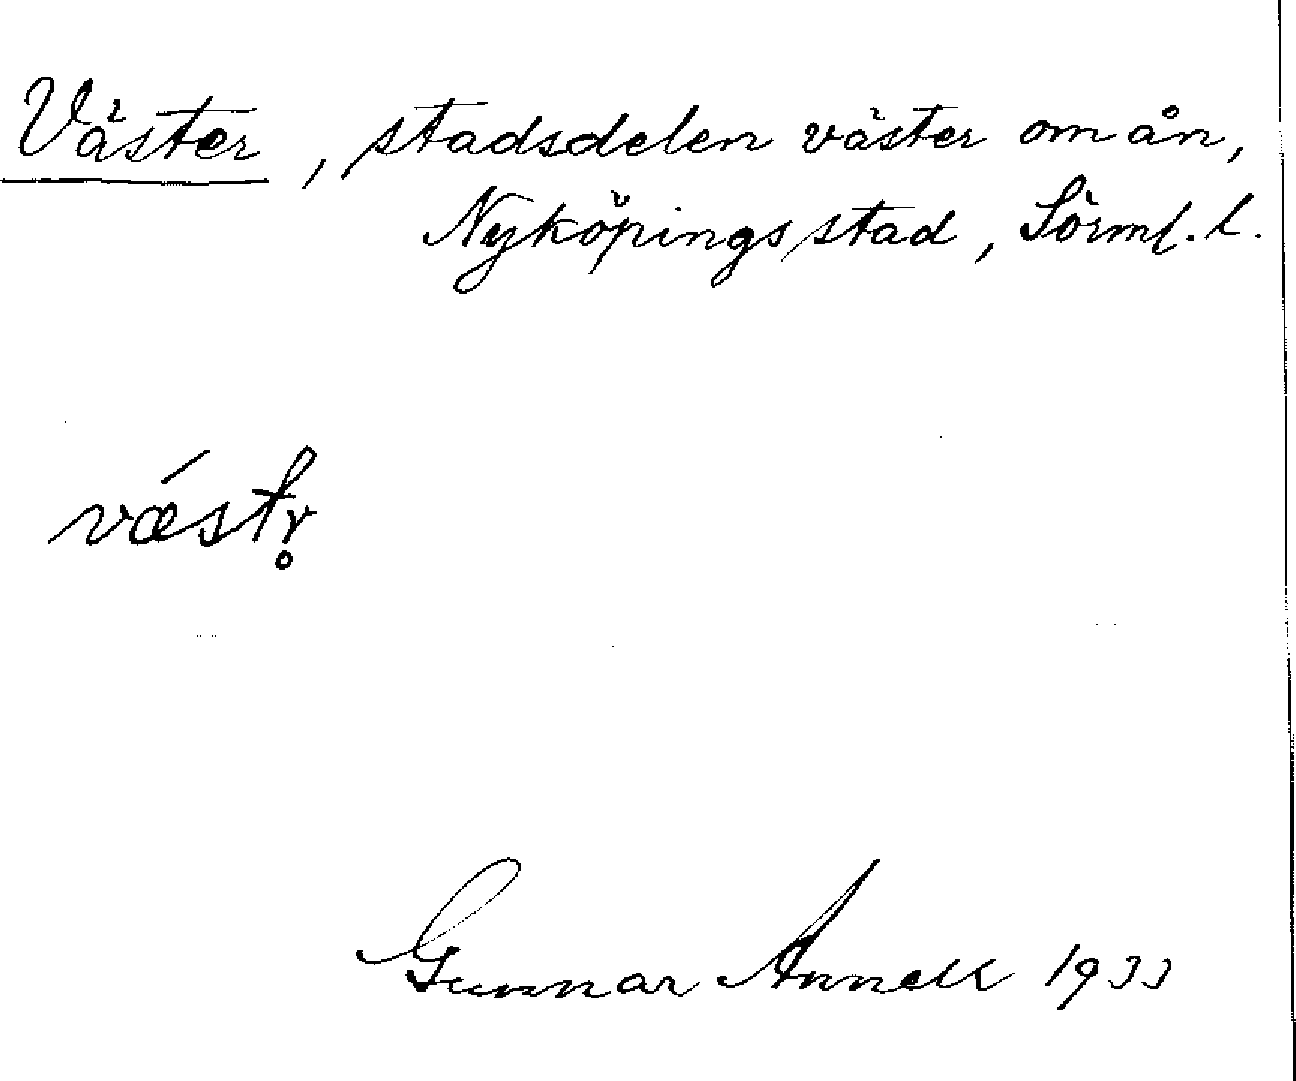 Väster, stadsdelen väster om ån,
Nyköpings stad, Sörml. l.
vǽstr̥
Gunnar Annell 1933